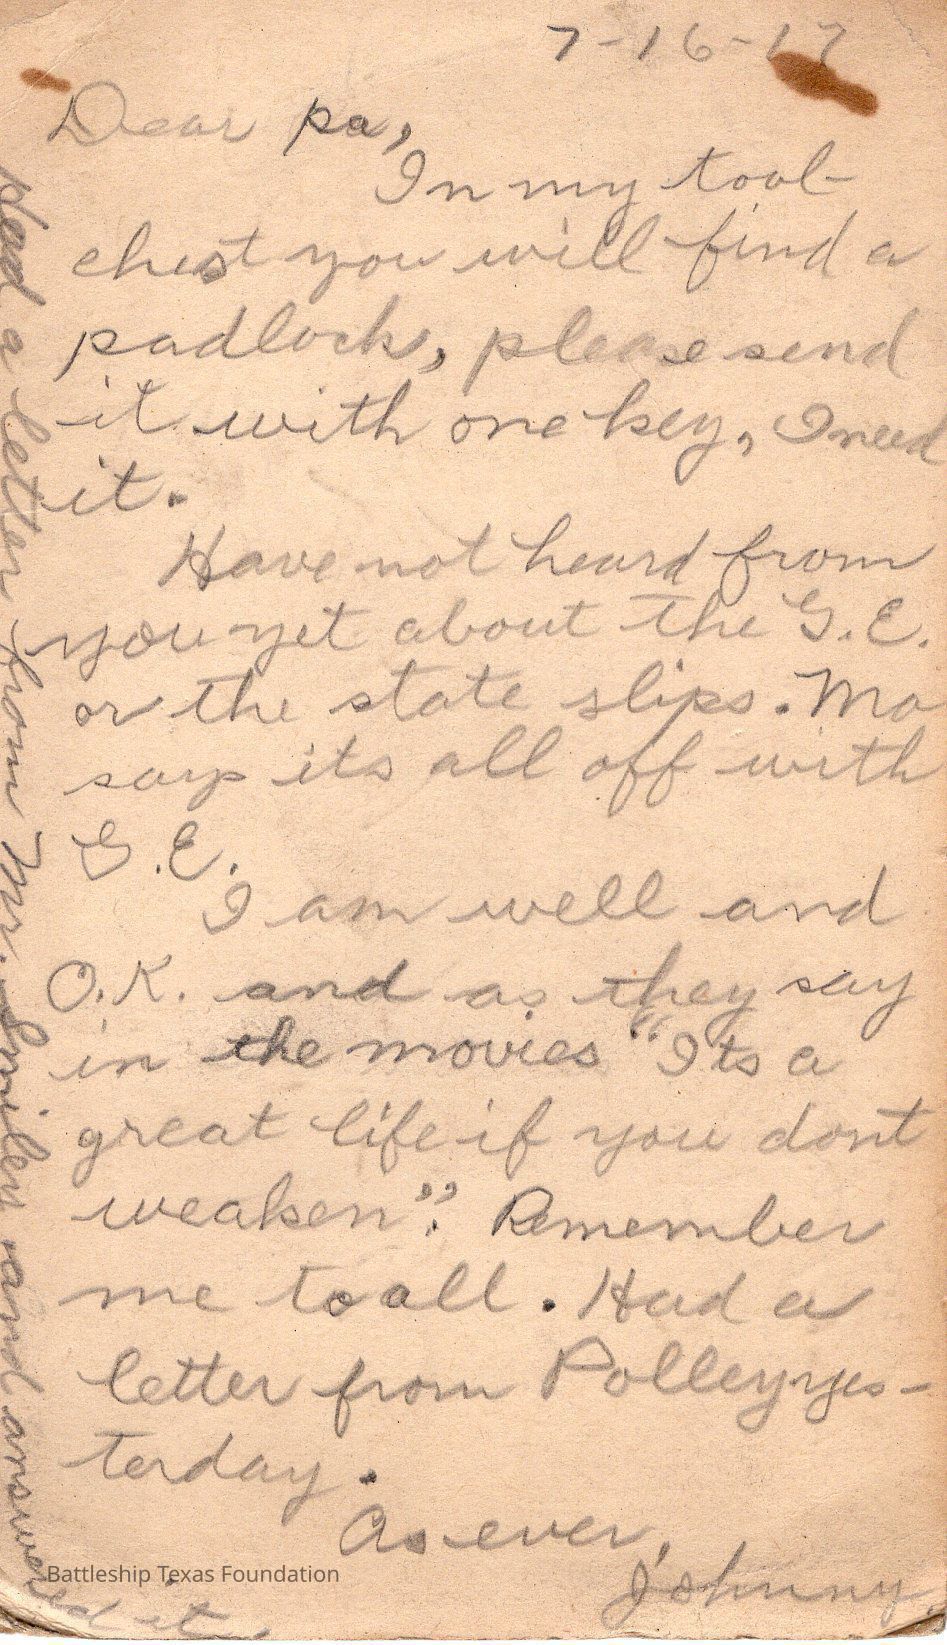 7-16-17
Dear pa,
In my tool-
chest you will find a
padlock, please send
it with one key, I need
it.
Have not heard from
you yet about the G.E.
or the state slips. Ma
says its all off with
G.E.
I am well and
O.K. and as they say
in the movies "Its a
great life if you dont
weaken". Remember
me to all. Had a
letter from Polley yes-
terday.
As ever,
Johnny.
Had a letter from Mr. Smiley and answered it.
Battleship Texas Foundation